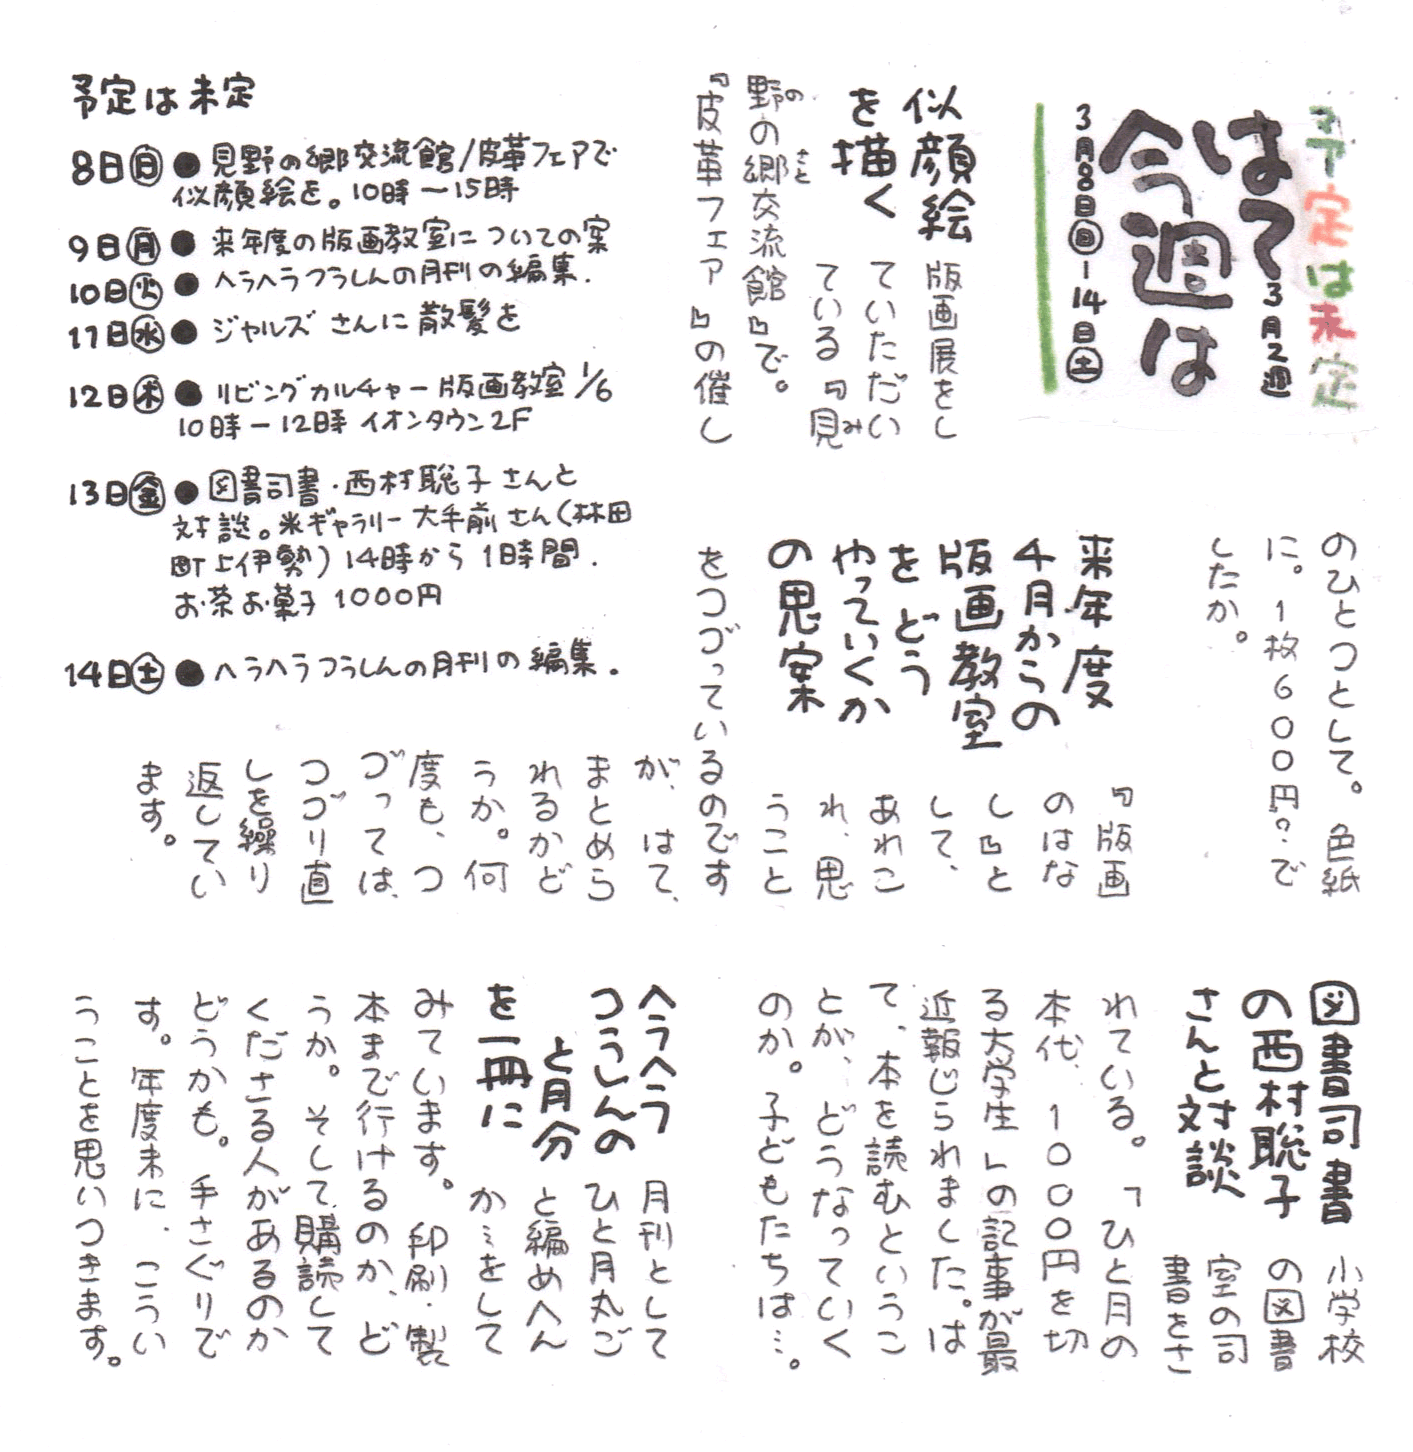 予定は未定
はて
今週は
3月2週
3月8日㊐ー14日㊏
似顔絵
を描く
版画展をし
ていただい
ている『見み
野のの郷さと交流館』で。
『皮革フェア』の催し
のひとつとして。色紙
に。1枚600円?で
したか。
来年度
4月からの
版画教室
をどう
やっていくか
の思案
『版画
のはな
し』と
して、
あれこ
れ、思
うこと
をつづっているのです
が、はて、
まとめら
れるかど
うか。何
度も、つ
づっては、
つづり直
しを繰り
返してい
ます。
図書司書
の西村聡子
さんと対談
小学校
の図書
室の司
書をさ
れている。「ひと月の
本代、1000円を切
る大学生」の記事が最
近報じられました。は
て、本を読むというこ
とが、どうなっていく
のか。子どもたちは…。
ヘラヘラ
つうしんの
ひと月分
を一冊に
月刊として
ひと月丸ご
と編めへん
か…をして
みています。印刷・製
本まで行けるのか、ど
うか。そして購読して
くださる人があるのか
どうかも。手さぐりで
す。年度末に、こうい
うことを思いつきます。
予定は未定
8日㊐●見野の郷交流館/皮革フェアで
似顔絵を。10時ー15時
9日㊊●来年度の版画教室についての案
10日㊋●ヘラヘラつうしんの月刊の編集.
11日㊌●ジャルズさんに散髪を
12日㊍●リビングカルチャー版画教室1/6
10時ー12時イオンタウン2F
13日㊎●図書司書・西村聡子さんと
対談。米ギャラリー大手前さん(林田
町上伊勢)14時から1時間.
お茶お菓子1000円
14日㊏●ヘラヘラつうしんの月刊の編集.